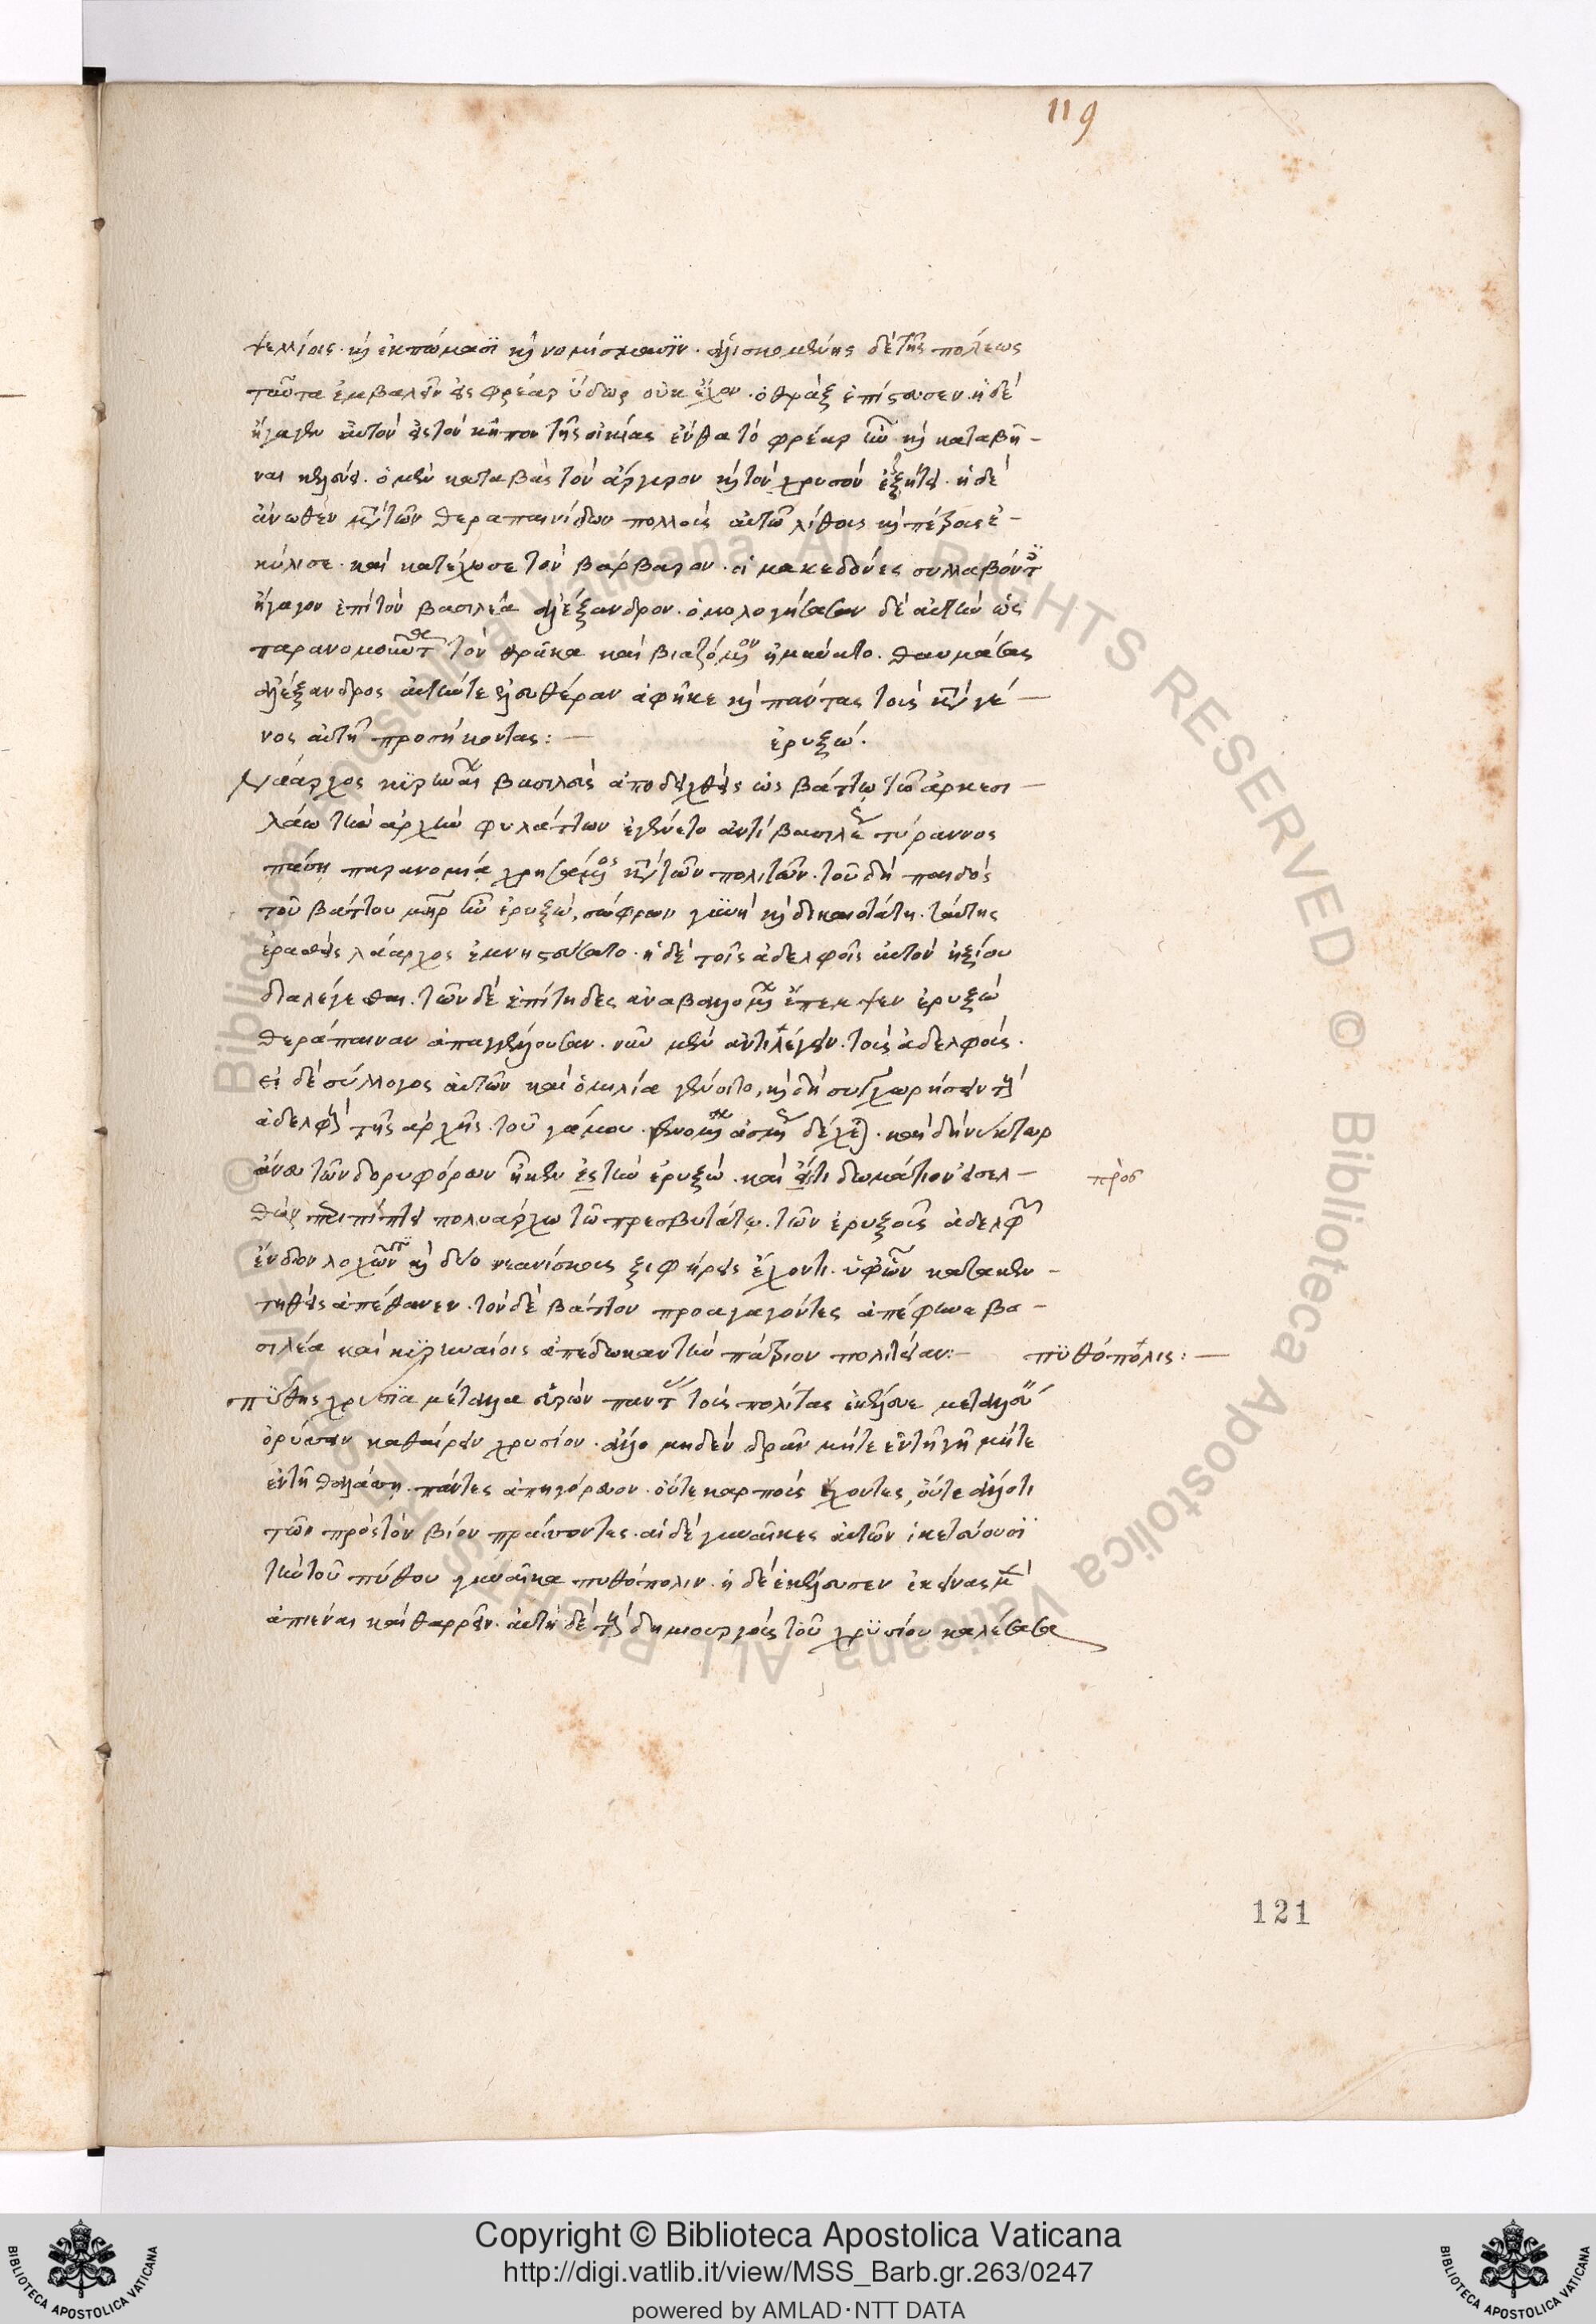 119
ψελλίοις· καὶ ἐκπώμασϊ καὶ νομίσμασϊν· ἁλισκομένης δὲ τῆς πόλεως
ταῦτα ἐμβαλεῖν εἰς φρέαρ ὕδωρ οὐκ ἔχον· ὁ θρᾲξ ἐπίστευσεν· ἡ δὲ
ἤγαγεν αὐτὸν εἰς τὸν κῆπον τῆς οἰκίας ἔνθα τὸ φρέαρ ἦν καὶ καταβῆ-
ναι κελεύει· ὁ μὲν καταβὰς τὸν ἄργυρον καὶ τὸν χρυσὸν ἐξήτει· ἡ δὲ
ἄνωθεν μετὰ τῶν θεραπαινίδων πολλοὺς αὐτῶ λίθους καὶ πέτρας ἐ-
κύλισε· καὶ κατέχωσε τὸν βάρβαρον· οἱ μακεδόνες συλλαβόντες
ἤγαγον ἐπὶ τὸν βασιλέα ἀλέξανδρον· ὁμολογήσασαν δὲ αὐτὴν ὡς
παρανομοῦντα τὸν θρᾶκα καὶ βιαζόμενον ἠμύνατο. θαυμάσας
ἀλέξανδρος αὐτήν τε ἐλευθέραν ἀφῆκε καὶ πάντας τοὺς κατὰ γέ-
νος αὐτῆ προσήκοντας: — ἐρυξώ·
Λάαρχος κϋρηναίων βασιλεὺς ἀποδειχθεὶς ὡς βάττω τῶ ἀρκεσι-
λάω τὴν ἀρχὴν φυλάττων ἐγένετο ἀντὶ βασιλέως τύραννος
πάση παρανομία χρησάμενος κατὰ τῶν πολιτῶν· τοῦ δὴ παιδὸς
τοῦ βάττου μήτηρ ἦν ἐρυξώ, σώφρων γυνὴ καὶ δικαιοτάτη· ταύτης
ἐρασθεὶς λάαρχος ἐμνηστεύσατο· ἡ δὲ τοῖς ἀδελφοῖς αὐτὸν ἠξίου
διαλέγεσθαι. τῶν δὲ ἐπίτηδες ἀναβαλομένων ἔπεμψεν ἐρυξὼ
θεράπαιναν ἀπαγγέλουσαν· νῦν μὲν ἀντιλέγειν· τοὺς ἀδελφούς·
εἰ δὲ σύλλογος αὐτῶν καὶ ὁμιλία γένοιτο, καὶ δὴ συγχωρήσειν τοὺς
ἀδελφοὺς τῆς ἀρχῆς· τοῦ γάμου· δέχεται· καὶ δὴ νύκτωρ
ἄνευ τῶν δορυφόρων ἧκεν ἐς τὴν ἐρυξώ· καὶ εἴς τι δωμάτιον εἰσελ-
πρὸσ
θὼν περιπίπτει πολυάρχω τῶ πρεσβυτάτω· τῶν ἐρυξοῦς ἀδελφῶν
ἔνδον λοχῶντι καὶ δύο νεανίσκους ξιφήρεις ἔχοντι· ὑφ᾽ ὧν κατακεν-
τηθεὶς ἀπέθανεν· τὸν δὲ βάττον προαγαγόντες ἀπέφηνα βα-
σιλέα καὶ κϋρηναίοις ἀπέδωκαν τὴν πάτριον πολιτείαν:-
πϋθόπολις: —
πϋθης χρυσϊα μέταλλα εὑρὼν πάντας τοὺς πολίτας ἐκέλευε μεταλλεύ
ὀρύσσειν καθαίρειν χρυσίον· ἄλλο μηδὲν δρᾶν μήτε ἐν τῆ γῆ μήτε
ἐν τῆ θαλάσση· πάντες ἀπηγόρευον· οὔτε καρποὺς ἔχοντες, οὔτε ἄλλό τι
τῶν πρὸς τὸν βίον πράττοντες· αἱ δὲ γυναῖκες αὐτῶν ἱκετεύουσϊ
τὴν τοῦ πύθου γυναῖκα πυθόπολιν· ἡ δὲ ἐκέλευσεν ἐκείνας μὲν
ἀπιέναι καὶ θαρρεῖν· αὐτὴ δὲ τοὺς δημιουργοὺς τοῦ χρϋσίου καλέσασα
121
© Biblioteca Apostolica Vaticana ALL RIGHTS RESERVED
Copyright © Biblioteca Apostolica Vaticana
http://digi.vatlib.it/view/MSS_Barb.gr.263/0247
powered by AMLAD·NTT DATA
BIBLIOTECA APOSTOLICA VATICANA
BIBLIOTECA APOSTOLICA VATICANA